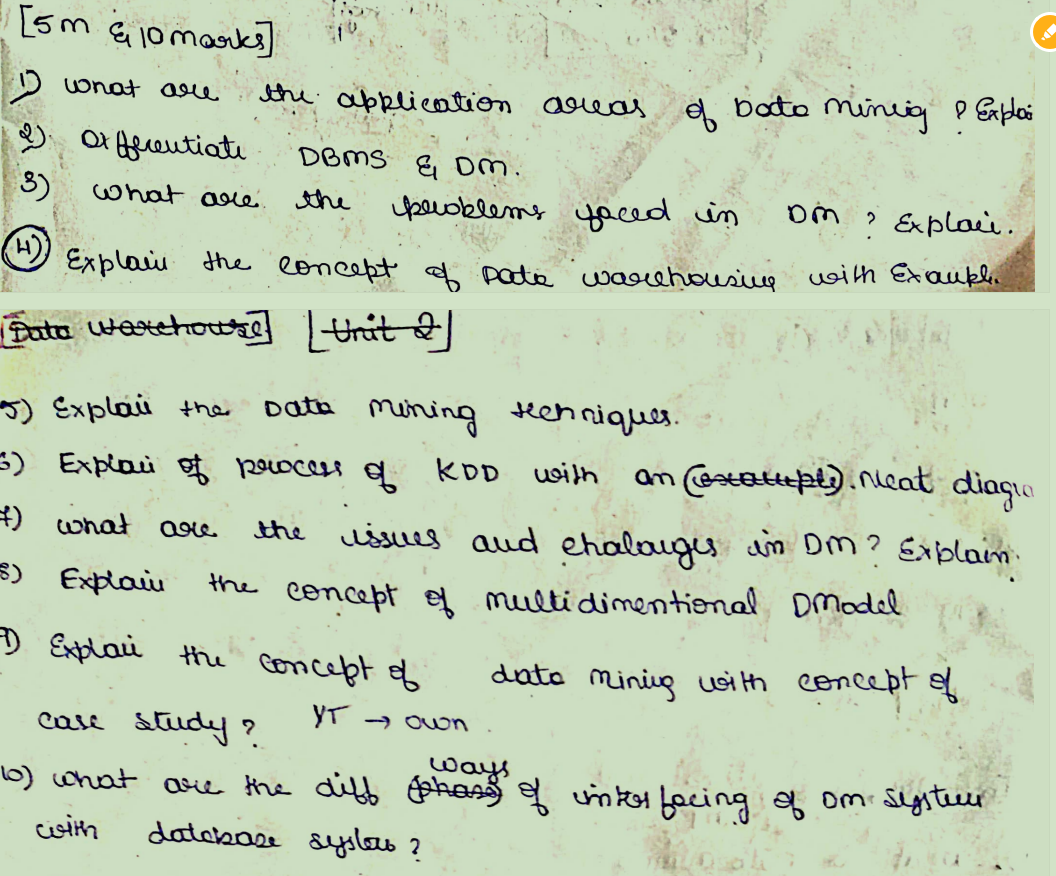 [5m & 10 marks]
1) what are the application areas of Data Mining ? Explai
2) Differentiate DBMS & DM.
3) what are the problems faced in DM ? Explain.
4) Explain the concept of Data warehousing with Example.
[Data warehouse] [Unit 2]
5) Explain the Data Mining techniques.
6) Explain of process of KDD with an (example). Neat diagra
7) what are the issues and chalanges in DM? Explain.
8) Explain the concept of multidimentional DModel
9) Explain the concept of data mining with concept of
case study? YT → own
ways
10) what are the diff (phase) of interfacing of DM system
with database system ?